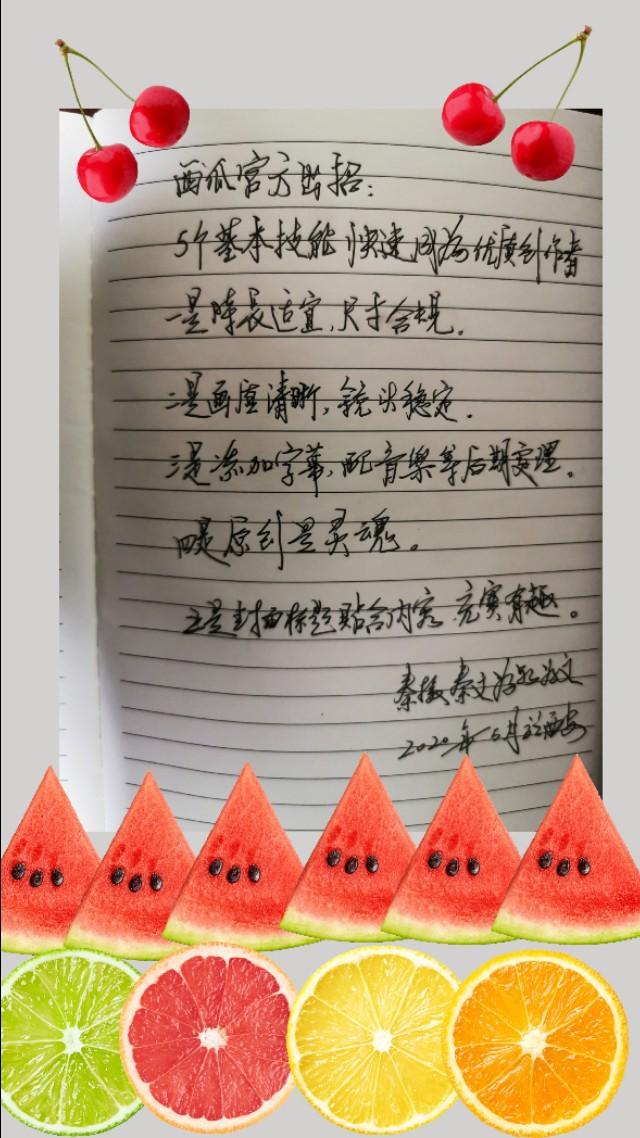 西瓜官方出招：
5个基本技能 快速成为优质创作者
一是時长适宜，尺寸合规。
二是画质清晰，镜头稳定。
三是添加字幕，配音樂等后期处理。
四是原创是灵魂。
五是封面标题贴合内容 充实有趣。
秦
2020年6月於西安